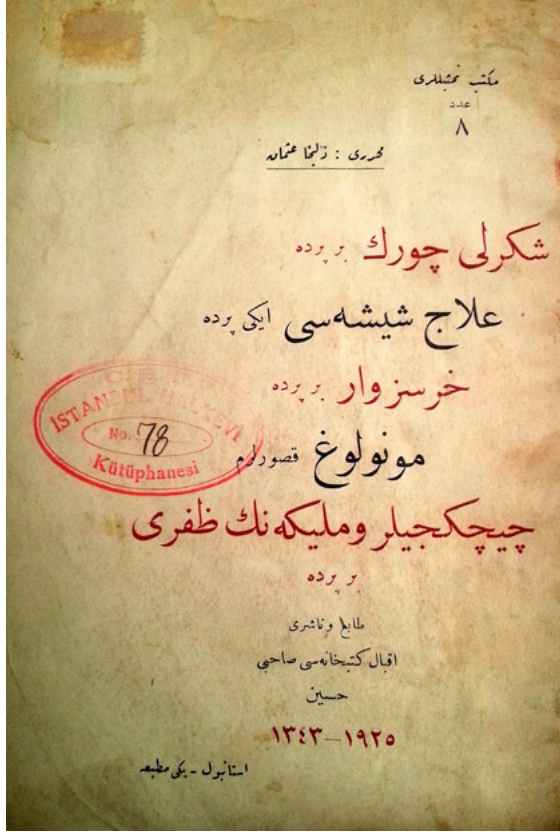 مكتب تمثيللرى
عدد
٨
محررى : زليخا عثمان
شكرلى چورك بر پرده
علاج شيشه‌سى ايكى پرده
خرسز وار بر پرده
مونولوغ قصورلرم
چيچكجيلر و مليكه نك ظفرى
بر پرده
طابع و ناشرى
اقبال كتبخانه‌سى صاحبى
حسين
١٣٤٣—١٩٢٥
استانبول - يكى مطبعه
ISTANBUL HALKEVI
No. 78
Kütüphanesi